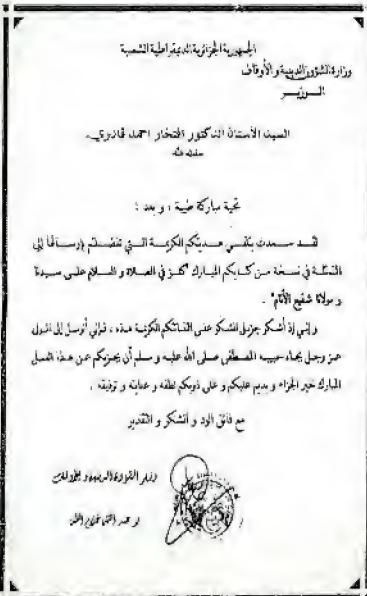 الجمهورية الجزائرية الديمقراطية الشعبية
وزارة الشؤون الدينية والأوقاف
الـوزيـر
السيد الأستاذ الدكتور افتخار احمد قادري
حفظه الله
تحية مباركة طيبة ، و بعد ؛
لقد سعدت بتلقي هديتكم الكريمة التي تفضلتم بإرسالها إلي
المتمثلة في نسخة من كتابكم المبارك "كنز في الصلاة و السلام على سيدنا
و مولانا شفيع الأنام" .
و إني إذ أشكر جزيل الشكر على التفاتتكم الكريمة هذه ، فإني أتوسل إلى المولى
عز وجل بجاه حبيبه المصطفى صلى الله عليه و سلم أن يجزيكم عن هذا العمل
المبارك خير الجزاء و يديم عليكم و على ذويكم لطفه و عنايته و توفيقه .
مع فائق الود و الشكر و التقدير
وزير الشؤون الدينية و الأوقاف